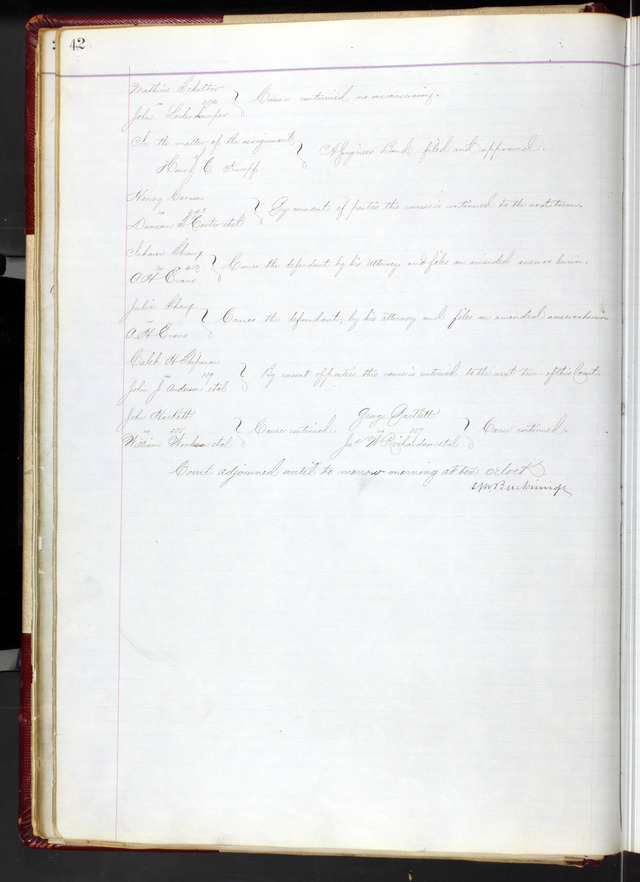 42
Mathias Schelter
vs 204 Cause continued no one answering.
John
In the matter of the assignment
of Assignees Bond filed and approved.
Henry C. Kumpf
Henry
vs By consent of parties this cause is continued to the next term.
Duncan Carter et al
vs 213 Comes the defendant by his attorney and files an amended answer herein.
A H Evans
vs Comes the defendant, by his attorney and files an amended answer herein
A H Evans
Caleb H
vs 270 By consent of parties this cause is continued to the next term of this Court.
John J Anderson et al
John Hackett George Bartlett
vs Cause continued. vs 287 Cause continued.
William et al Jas W Richardson et al
Court adjourned until to morrow morning at ten oclock